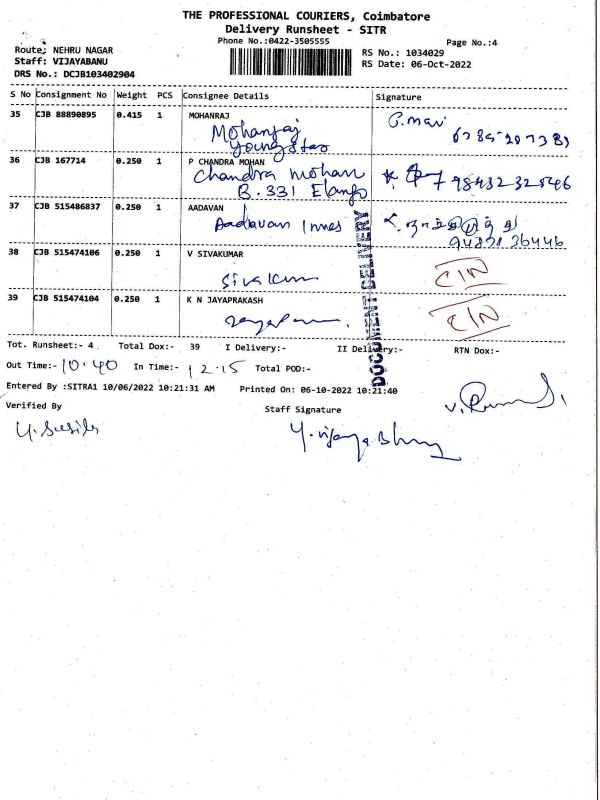 THE PROFESSIONAL COURIERS, Coimbatore
Delivery Runsheet - SITR
Phone No.:0422-3505555
Page No.:4
Route: NEHRU NAGAR
RS No.: 1034029
Staff: VIJAYABANU
RS Date: 06-Oct-2022
DRS No.: DCJB103402904
S No Consignment No Weight PCS Consignee Details Signature
35 CJB 88890895 0.415 1 MOHANRAJ
Mohanraj
P.mari
36 CJB 167714 0.250 1 P CHANDRA MOHAN
Chandra mohan
B.331
37 CJB 515486837 0.250 1 AADAVAN
Aadavan
38 CJB 515474106 0.250 1 V SIVAKUMAR
Sivakum
CIN
39 CJB 515474104 0.250 1 K N JAYAPRAKASH
CIN
DOCUMENT DELIVERY
Tot. Runsheet:- 4 Total Dox:- 39 I Delivery:- II Delivery:- RTN Dox:-
Out Time:- 10.40 In Time:- 12.15 Total POD:-
Entered By :SITRA1 10/06/2022 10:21:31 AM Printed On: 06-10-2022 10:21:40
Verified By
Staff Signature